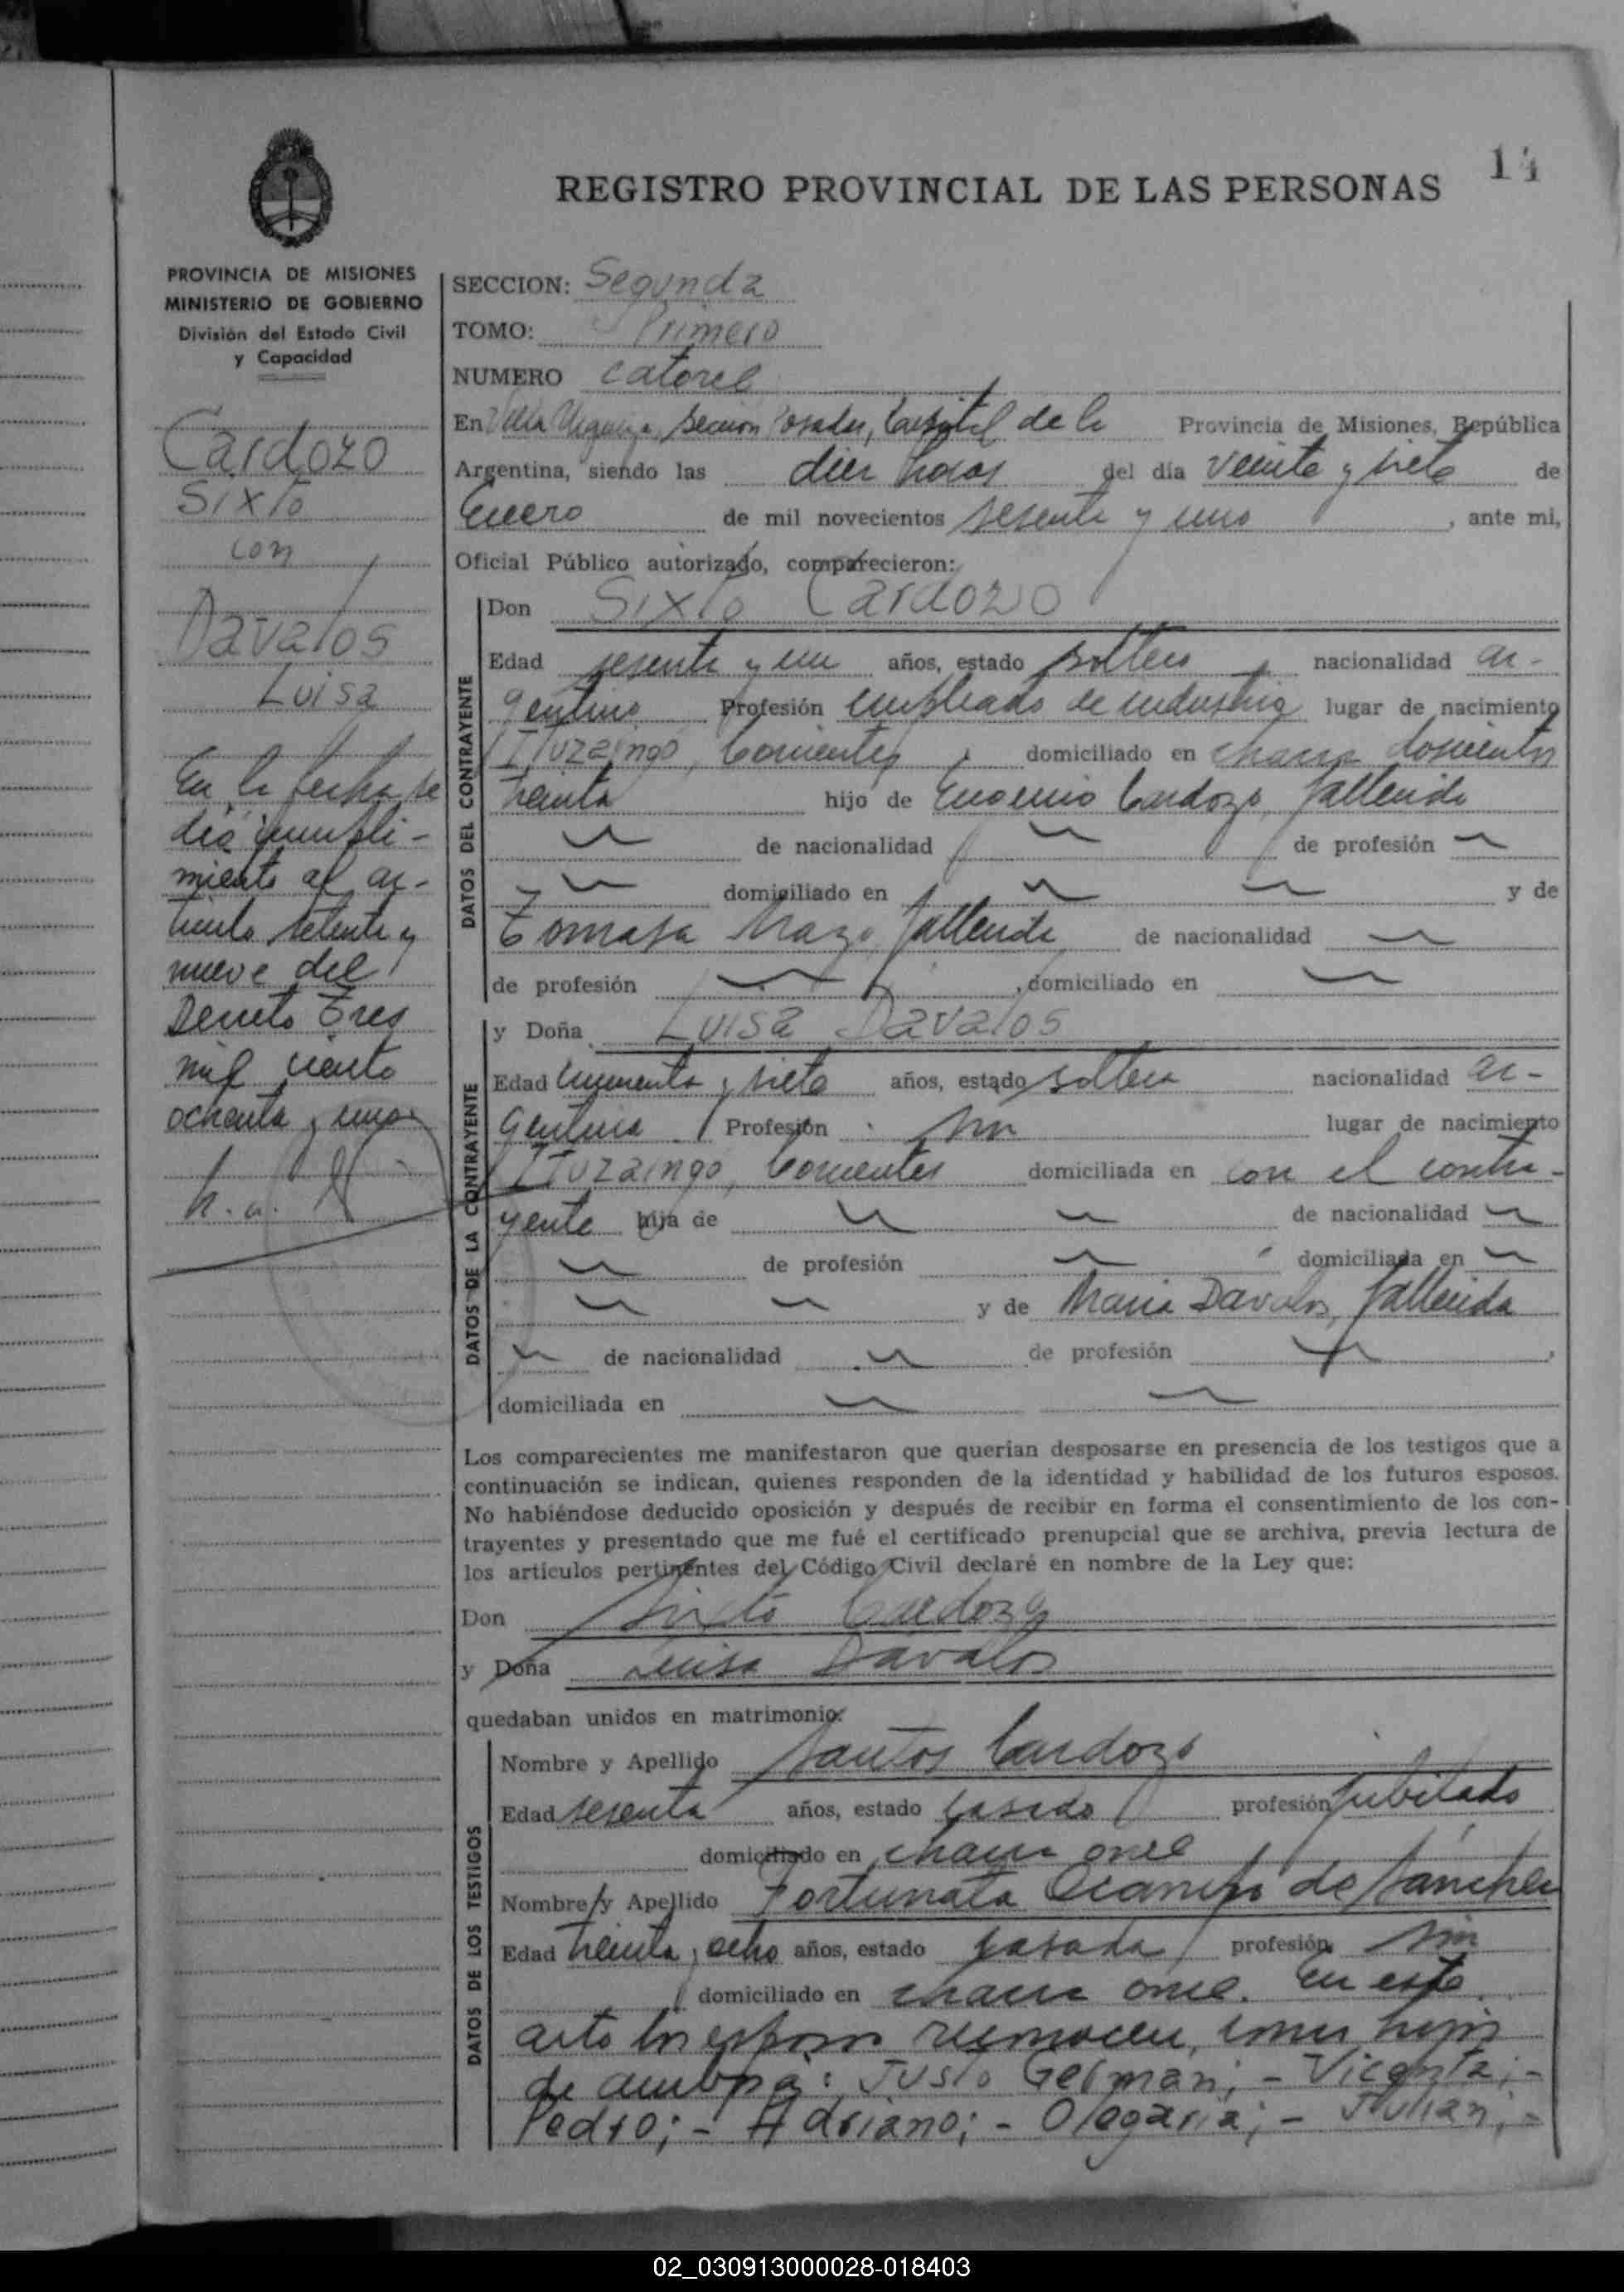 14
REGISTRO PROVINCIAL DE LAS PERSONAS
PROVINCIA DE MISIONES
MINISTERIO DE GOBIERNO
División del Estado Civil
y Capacidad
Cardozo
Sixto
con
Davalos
Luisa
En la fecha se
dió cumpli-
miento al ar-
tículo setenta y
nueve del
Decreto Tres
mil ciento
ochenta y uno
SECCION: Segunda
TOMO: Primero
NUMERO catorce
En Villa Urquiza, sección Posadas, Capital de la Provincia de Misiones, República
Argentina, siendo las diez horas del día veinte y siete de
Enero de mil novecientos sesenta y uno, ante mi,
Oficial Público autorizado, comparecieron:
DATOS DEL CONTRAYENTE
Don Sixto Cardozo
Edad sesenta y un años, estado soltero, nacionalidad ar-
gentino Profesión empleado de industria lugar de nacimiento
Ituzaingo, Corrientes, domiciliado en chacra doscientos
treinta hijo de Eugenio Cardozo, fallecido
de nacionalidad de profesión
domiciliado en y de
Tomasa fallecida de nacionalidad
de profesión , domiciliado en
DATOS DE LA CONTRAYENTE
y Doña Luisa Davalos
Edad cincuenta y siete años, estado soltera nacionalidad ar-
gentina Profesión sin lugar de nacimiento
Ituzaingo, Corrientes domiciliada en con el contra-
yente hija de de nacionalidad
de profesión domiciliada en
y de Maria Davalos, fallecida
de nacionalidad de profesión ,
domiciliada en
Los comparecientes me manifestaron que querían desposarse en presencia de los testigos que a
continuación se indican, quienes responden de la identidad y habilidad de los futuros esposos.
No habiéndose deducido oposición y después de recibir en forma el consentimiento de los con-
trayentes y presentado que me fué el certificado prenupcial que se archiva, previa lectura de
los artículos pertinentes del Código Civil declaré en nombre de la Ley que:
Don Sixto Cardozo
y Doña Luisa Davalos
quedaban unidos en matrimonio.
DATOS DE LOS TESTIGOS
Nombre y Apellido Santos Cardozo
Edad sesenta años, estado casado profesión jubilado
domiciliado en chacra once
Nombre y Apellido Fortunata Ocampo de Sánchez
Edad treinta y ocho años, estado casada profesión sin
domiciliado en chacra once. En este
acto los esposos reconocen, como hijos
de ambos: Justo German; - Vicenta; -
Pedro; - Adriano; - Olegaria; - Julian; -
02_030913000028-018403